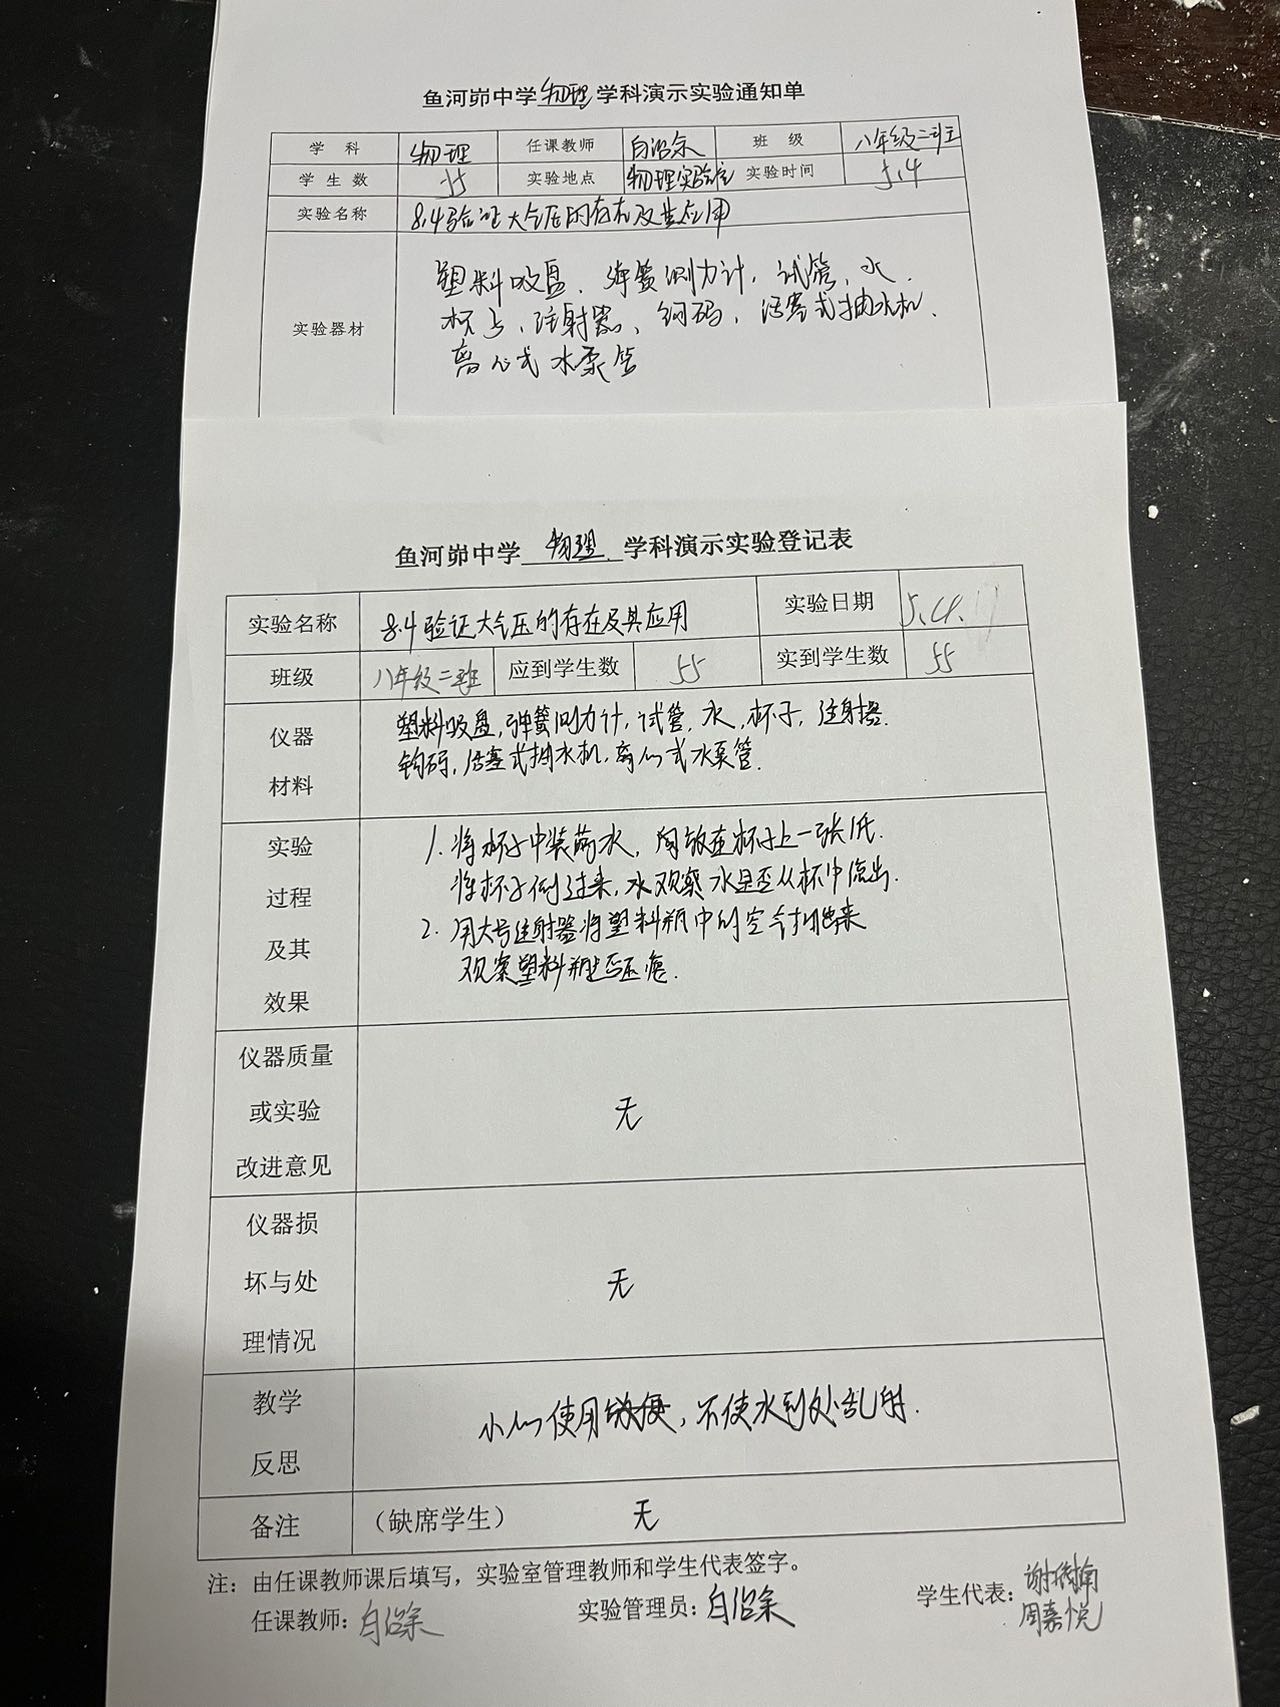 鱼河峁中学物理学科演示实验通知单
学 科 物理 任课教师 班 级 八年级二班
学 生 数 55 实验地点 物理实验室 实验时间 5.4
实验名称 8.4验证大气压的存在及其应用
塑料吸盘、弹簧测力计、试管、水、
实验器材 杯子、注射器、钩码、活塞式抽水机、
离心式水泵管
鱼河峁中学 物理 学科演示实验登记表
实验名称 8.4验证大气压的存在及其应用 实验日期 5.4
班级 八年级二班 应到学生数 55 实到学生数 55
仪器 塑料吸盘,弹簧测力计,试管,水,杯子,注射器.
材料 钩码,活塞式抽水机,离心式水泵管.
实验 1.将杯子中装满水,用纸在杯子上一张纸.
过程 将杯子倒过来,水观察水是否从杯中流出.
及其 2.用大号注射器将塑料瓶中的空气抽出来
效果 观察塑料瓶是否压瘪.
仪器质量
或实验 无
改进意见
仪器损
坏与处 无
理情况
教学 小心使用,不使水到处乱射.
反思
备注 (缺席学生) 无
注:由任课教师课后填写,实验室管理教师和学生代表签字。
任课教师: 实验管理员: 学生代表:
周嘉悦